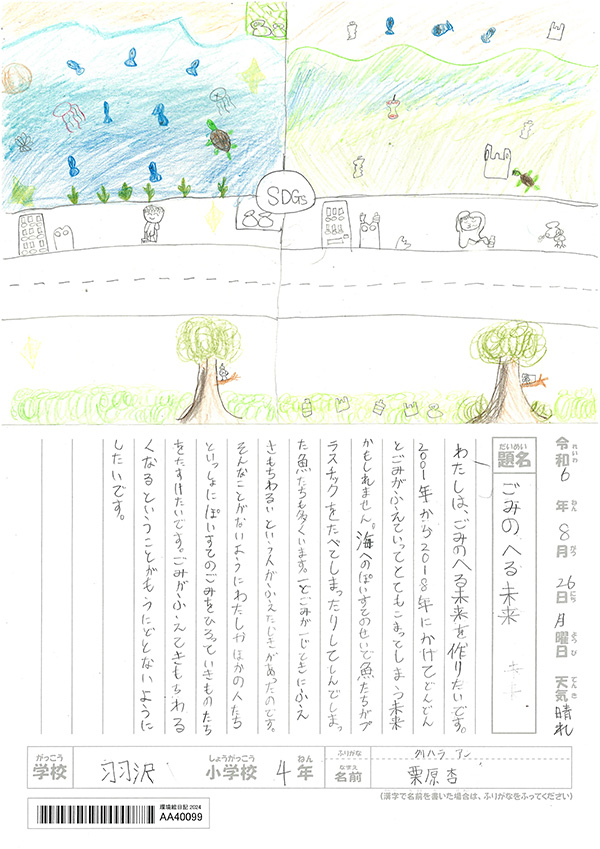 SDGs
令和6年8月26日月曜日 天気 晴れ
れいわ ねん がつ にち ようび てんき
だいめい
題名
ごみのへる未来
わたしは、ごみのへる未来を作りたいです。
2001年から2018年にかけてどんどん
とごみがふえていってとてもこまってしまう未来
かもしれません。海へのぽいすてのせいで魚たちがプ
ラスチックをたべてしまったりしてしんでしまっ
た魚たちも多くいます。一どごみが一じときにふえ
さもちわるいという人がふえたじきがあったのです。
そんなことがないようにわたしがほかの人たち
といっしょにぽいすてのごみをひろっていきものたち
をたすけたいです。ごみがふえてきもちわる
くなるということがもうにどとないように
したいです。
がっこう
学校
羽沢
しょうがっこう
小学校
4
ねん
年
ふりがな
なまえ
名前
クリハラ アン
栗原杏
(漢字で名前を書いた場合は、ふりがなをふってください)
環境絵日記 2024
AA40099